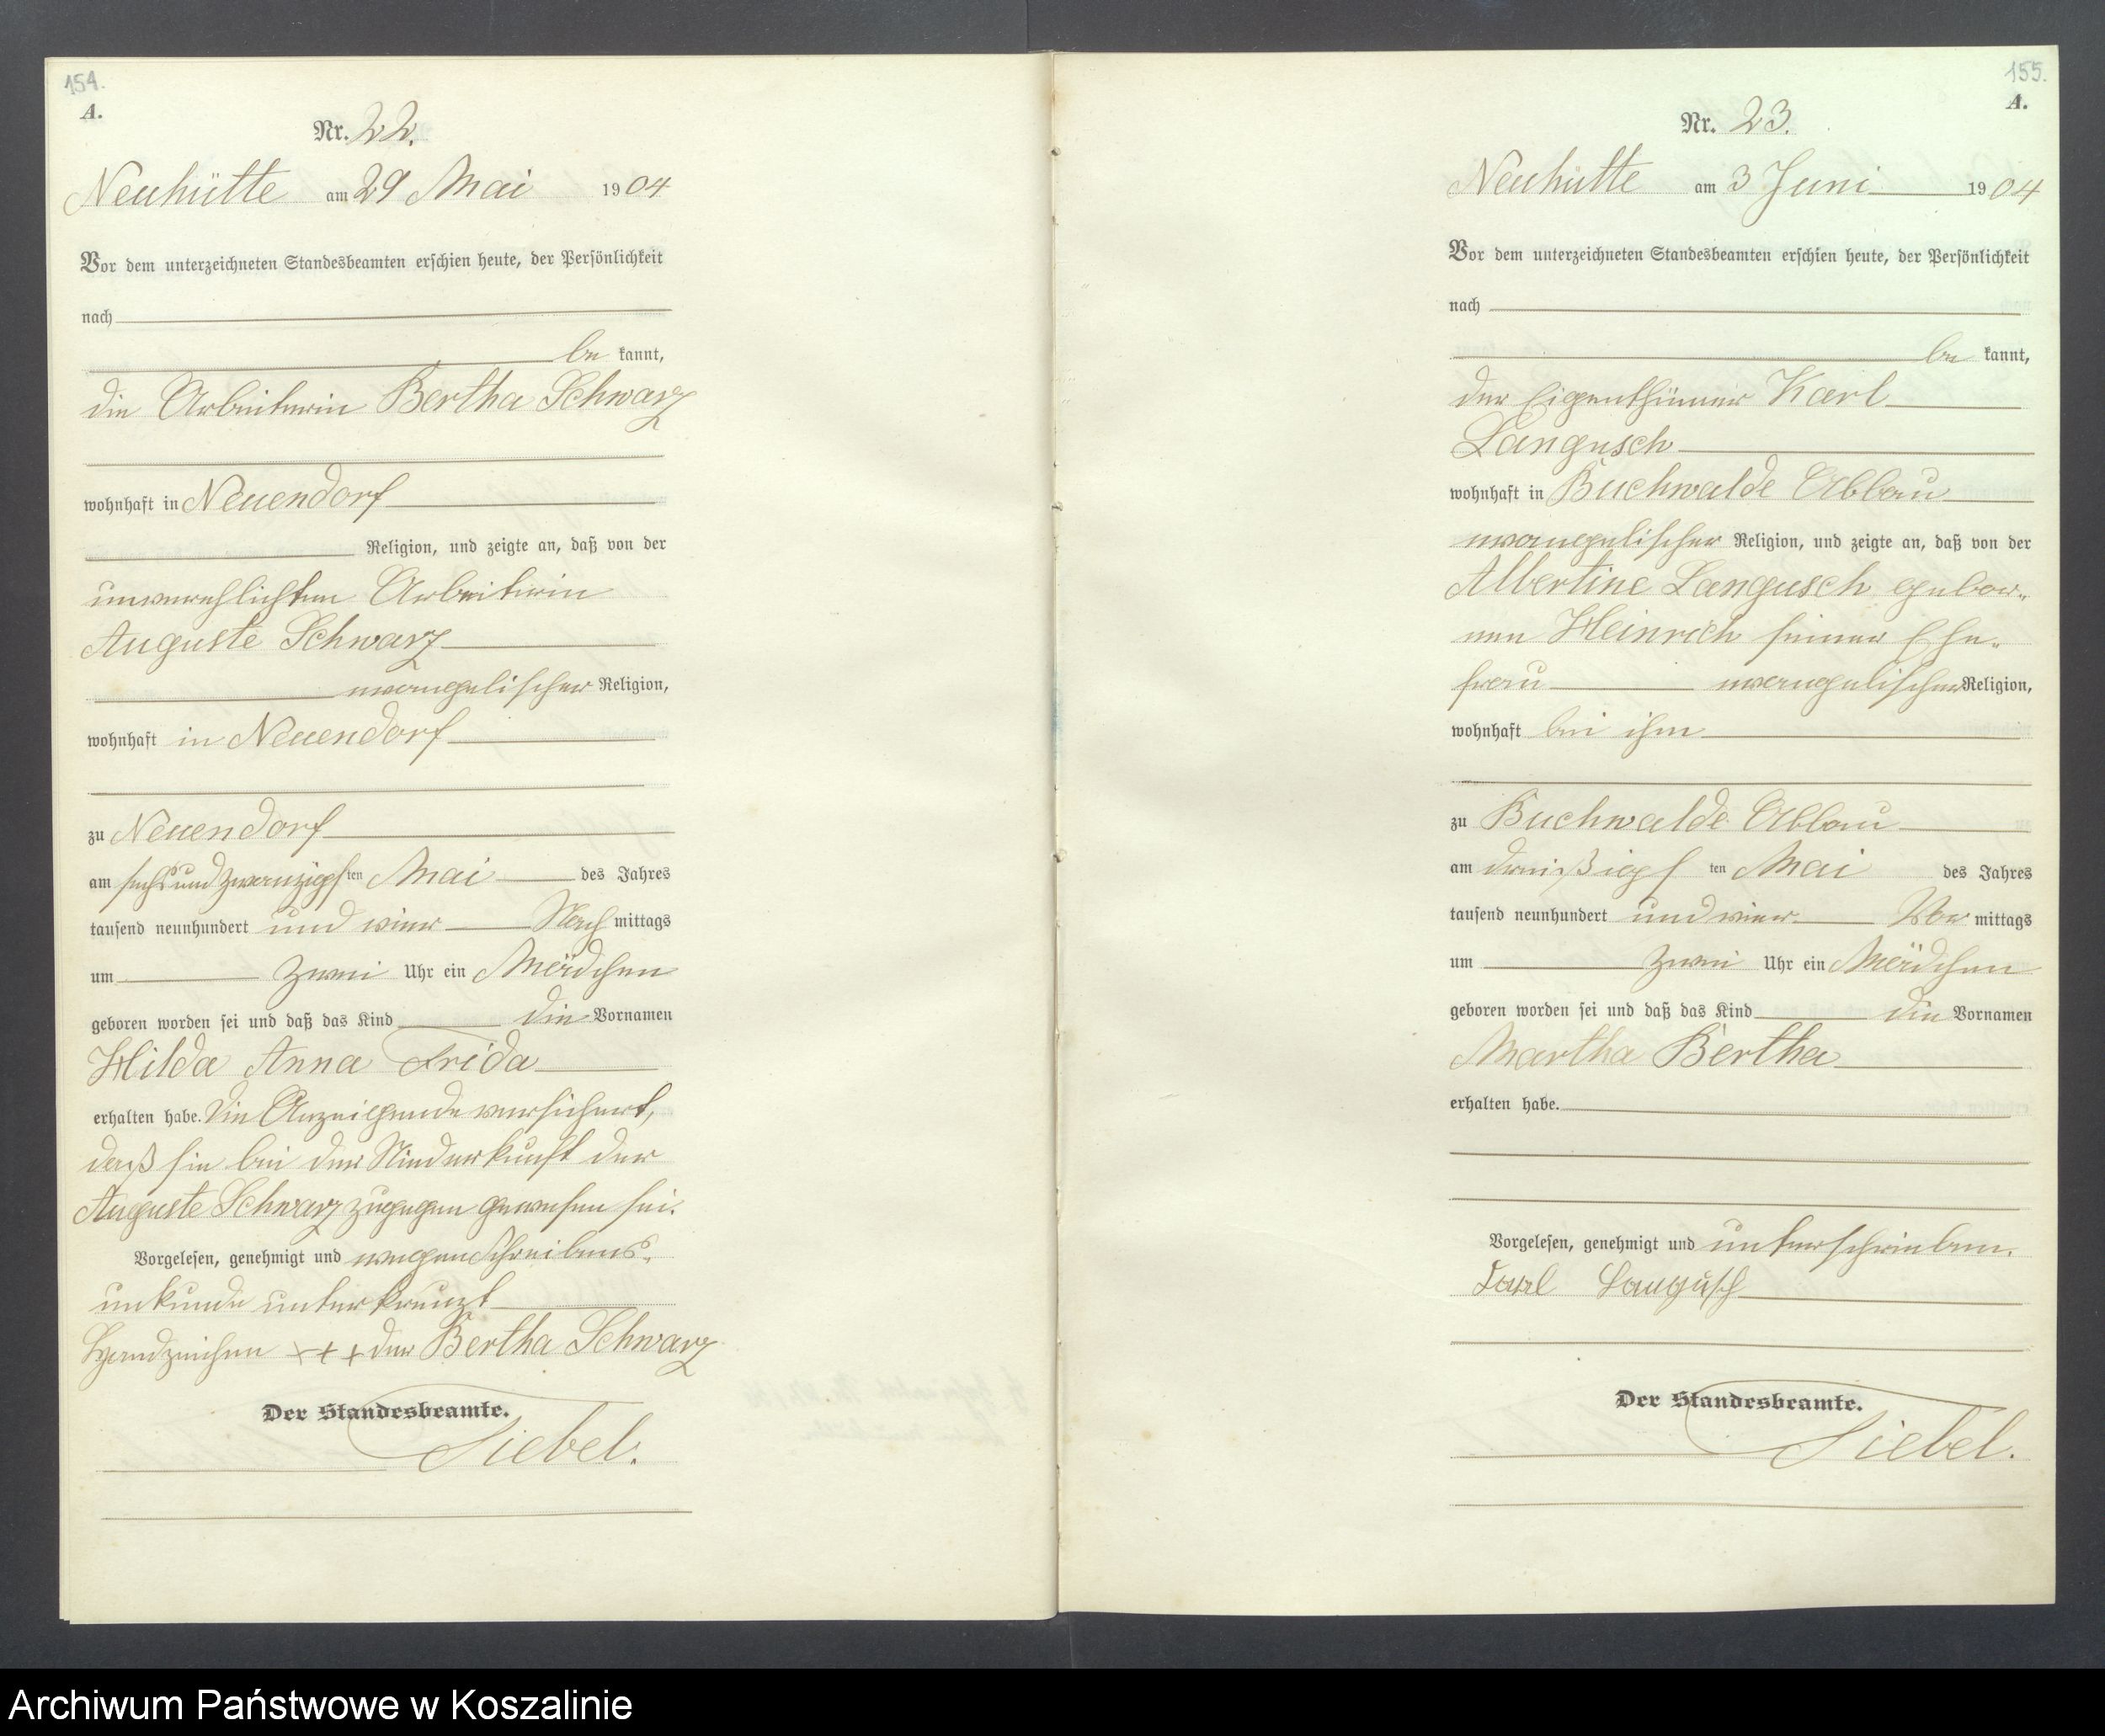 154.
A.
Nr. 22.
Neuhütte am 29 Mai 1904
Vor dem unterzeichneten Standesbeamten erschien heute, der Persönlichkeit
nach
be kannt,
die Arbeiterin Bertha Schwarz
wohnhaft in Neuendorf
Religion, und zeigte an, daß von der
unverehlichten Arbeiterin
Auguste Schwarz
evangelischer Religion,
wohnhaft in Neuendorf
zu Neuendorf
am sechsundzwanzigsten Mai des Jahres
tausend neunhundert und vier Nach mittags
um zwei Uhr ein Mädchen
geboren worden sei und daß das Kind die Vornamen
Hilda Anna Frida
erhalten habe. Die Anzeigende versichert,
daß sie bei der Niederkunft der
Auguste Schwarz zugegen gewesen sei.
Vorgelesen, genehmigt und wegen Schreibens-
unkunde unterkreuzt
Handzeichen +++ der Bertha Schwarz
Der Standesbeamte.
Siebel.
155.
A.
Nr. 23.
Neuhütte am 3 Juni 1904
Vor dem unterzeichneten Standesbeamten erschien heute, der Persönlichkeit
nach
be kannt,
der Eigenthümer Karl
Langusch
wohnhaft in Buchwalde Abbau
evangelischer Religion, und zeigte an, daß von der
Albertine Langusch gebor-
nen Heinrich seiner Ehe-
frau evangelischer Religion,
wohnhaft bei ihm
zu Buchwalde Abbau
am dreißigsten Mai des Jahres
tausend neunhundert und vier Vor mittags
um zwei Uhr ein Mädchen
geboren worden sei und daß das Kind die Vornamen
Martha Bertha
erhalten habe.
Vorgelesen, genehmigt und unterschrieben.
Karl Langusch
Der Standesbeamte.
Siebel.
Archiwum Państwowe w Koszalinie